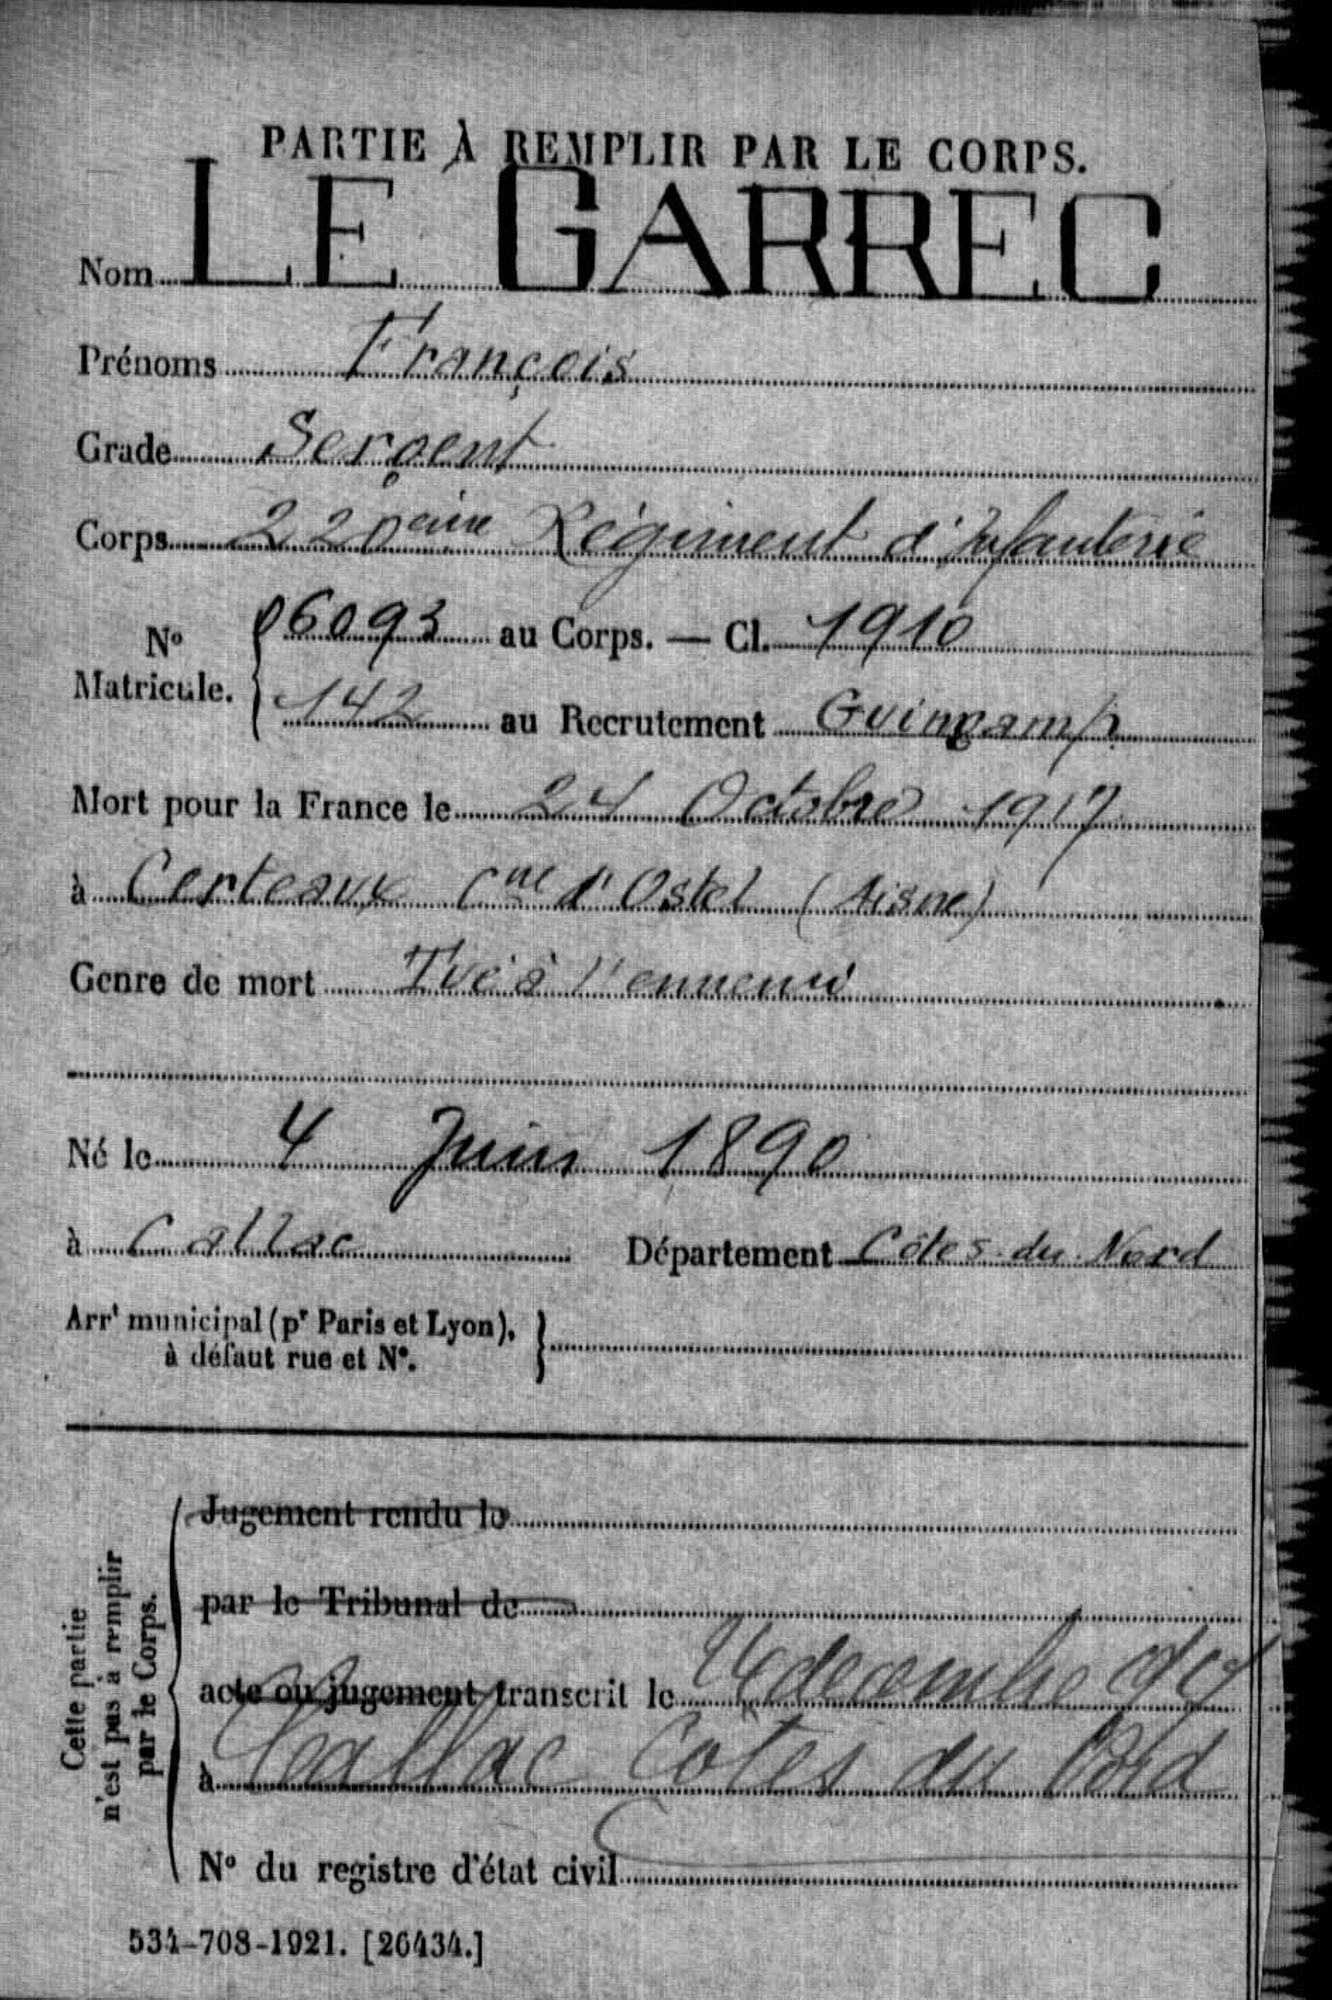 PARTIE À REMPLIR PAR LE CORPS.
Nom LE GARREC
Prénoms François
Grade Sergent
Corps 220eme Régiment d'Infanterie
No Matricule. 06093 au Corps. — Cl. 1910
142 au Recrutement Guingamp
Mort pour la France le 24 Octobre 1917
à Certeaux Cne d'Ostel (Aisne)
Genre de mort Tué à l'ennemi
Né le 4 Juin 1890
à Callac Département Côtes du Nord
Arrt municipal (pr Paris et Lyon),
à défaut rue et No.
Cette partie n'est pas à remplir par le Corps.
Jugement rendu le
par le Tribunal de
acte ou jugement transcrit le decembre
à Callac Côtes du Nord
No du registre d'état civil
534-708-1921. [26434.]